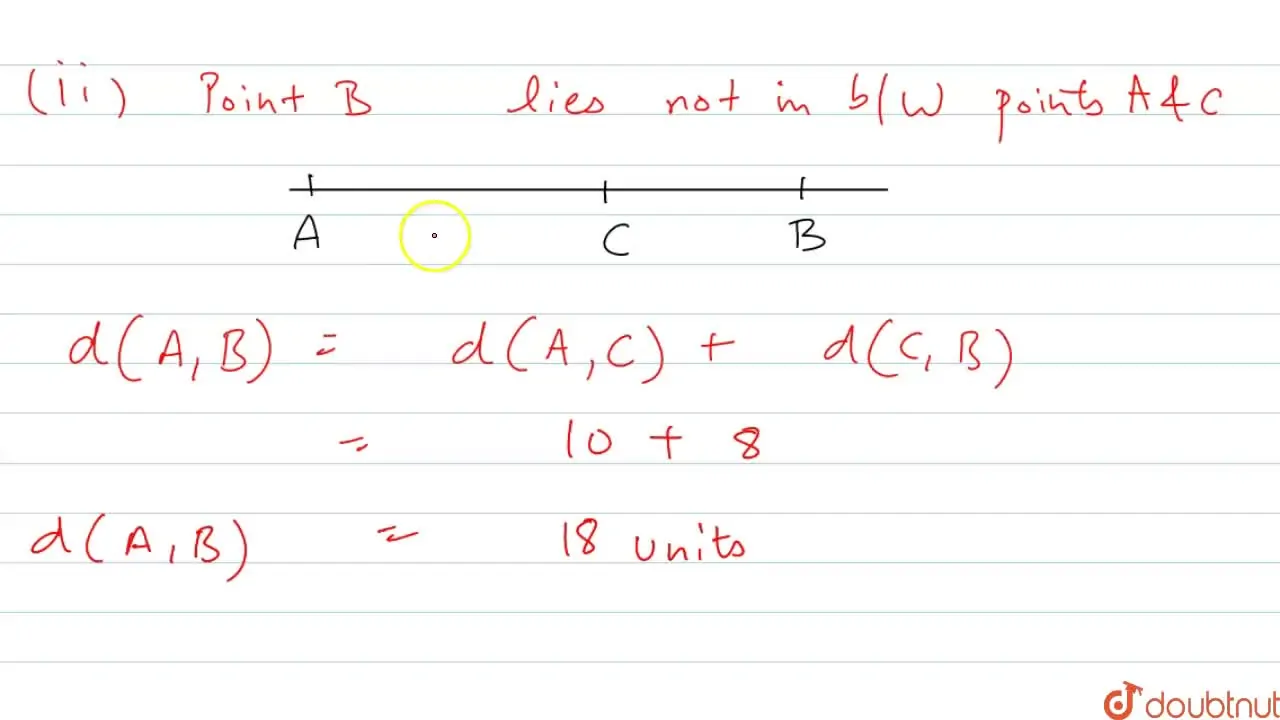 (ii) Point B lies not in b/w points A & C
A C B
d(A,B) = d(A,C) + d(C,B)
= 10 + 8
d(A,B) = 18 units
doubtnut